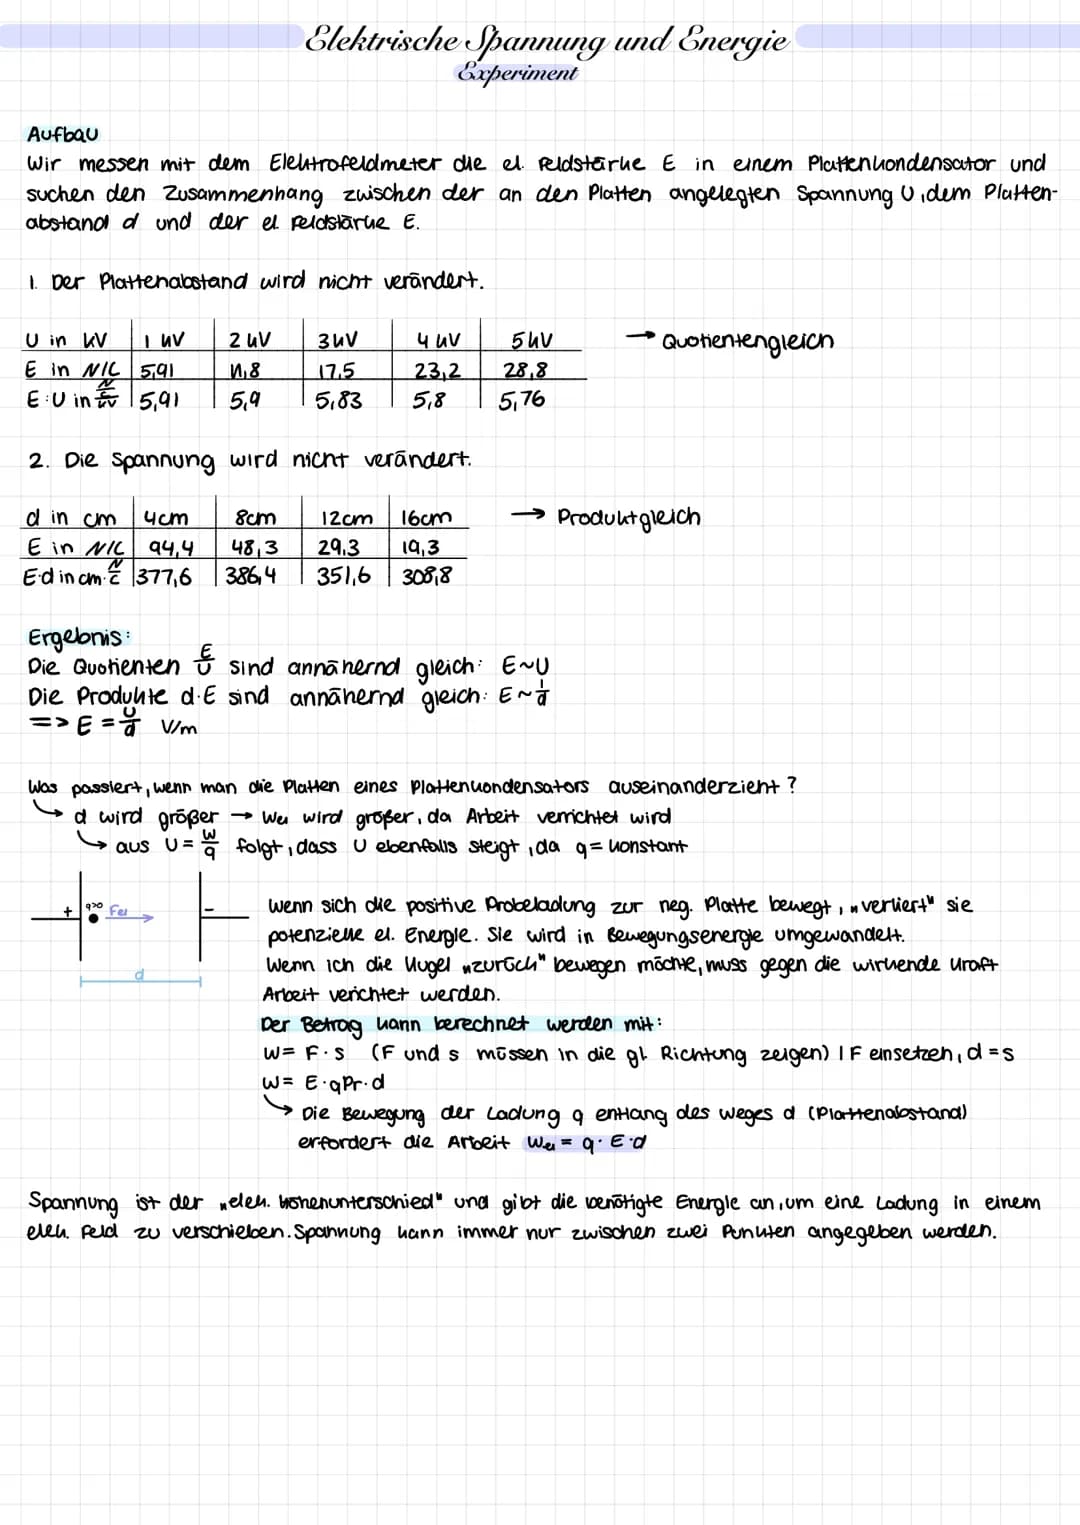 Elektrische Spannung und Energie
Experiment
Aufbau
Wir messen mit dem Elektrofeldmeter die el. Feldstärke E in einem Plattenkondensator und
suchen den Zusammenhang zwischen der an den Platten angelegten Spannung U, dem Platten-
abstand d und der el. Feldstärke E.
1. Der Plattenabstand wird nicht verändert.
U in kV 1 kV 2 kV 3 kV 4 kV 5 kV → Quotientengleich
E in N/C 5,91 11,8 17,5 23,2 28,8
E:U in N/kV 5,91 5,9 5,83 5,8 5,76
2. Die Spannung wird nicht verändert.
d in cm 4cm 8cm 12cm 16cm → Produktgleich
E in N/C 94,4 48,3 29,3 19,3
E·d in cm·N/C 377,6 386,4 351,6 308,8
Ergebnis:
Die Quotienten E/U sind annähernd gleich: E~U
Die Produkte d·E sind annähernd gleich: E~1/d
=> E = U/d V/m
Was passiert, wenn man die Platten eines Plattenkondensators auseinanderzieht?
↳ d wird größer → Wel wird größer, da Arbeit verrichtet wird
↳ aus U = W/q folgt, dass U ebenfalls steigt, da q = konstant
+ q>0 Fel -
d
Wenn sich die positive Probeladung zur neg. Platte bewegt, „verliert" sie
potenzielle el. Energie. Sie wird in Bewegungsenergie umgewandelt.
Wenn ich die Kugel „zurück" bewegen möchte, muss gegen die wirkende Kraft
Arbeit verichtet werden.
Der Betrag kann berechnet werden mit:
W = F·s (F und s müssen in die gl. Richtung zeigen) | F einsetzen, d = s
W = E·qPr·d
↳ Die Bewegung der Ladung q entlang des Weges d (Plattenabstand)
erfordert die Arbeit Wel = q·E·d
Spannung ist der „elek. Höhenunterschied" und gibt die benötigte Energie an, um eine Ladung in einem
elek. Feld zu verschieben. Spannung kann immer nur zwischen zwei Punkten angegeben werden.